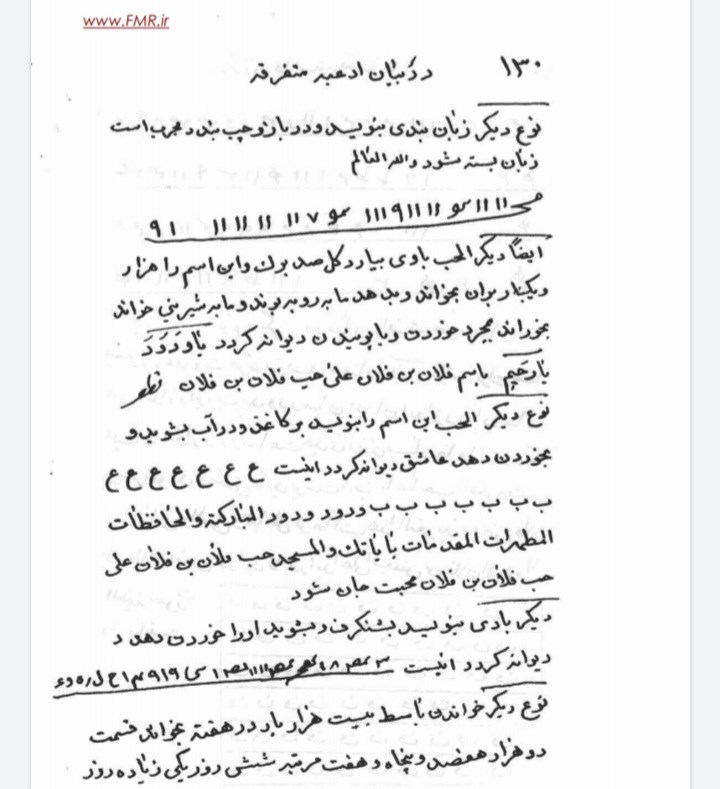 www.FMR.ir
۱۳۰ در بیان ادعیه متفرقه
نوع دیکر زبان بندی بنویسد و در بازو چپ بندد مجرب است
زبان بسته شود والله العالم
۱۱ ۱۱ ۱۱ ۹ ۱۱۱ ۷ ۱۱ ۱۱ ۱۱ ۱۱ ۹۱
ایضاً دیکر الحب باوی بیارد کل صد برك و این اسم را هزار
و یکبار بران بخواند و بدهد ما به رو به بویند و ما به شیرینی خواند
بخوراند بمجرد خوردن و یا بوییدن دیوانه کردد یا وَدَودَ
یا رَحیم باسم فلان بن فلان علی حب فلان بن فلان
نوع دیکر الحب این اسم را بنویسد بر کاغذ و در آب بشوید و
بخوردن دهد عاشق دیوانه کردد اینست ع ع ع ع ع ع ع
ب ب ب ب ب ب ب ب ودود ودود المبارکة والحافظات
المطهرات المقدمات یا بابك والمسجد حب فلان بن فلان علی
حب فلان بن فلان محبت جان شود
دیکر بادی بنویسد بشنکرف و بشوید اورا خوردن دهد د
دیوانه کردد اینست
نوع دیکر خواندن باسط بیست هزار بار در هفته بخواند قسمت
دو هزار هفصد و پنجاه و هفت مرتبه شش روز یکی زیاده روز